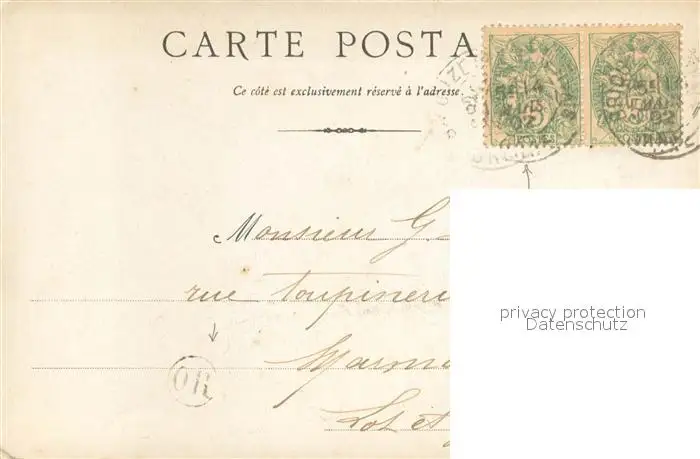 CARTE POSTA
Ce côté est exclusivement réservé à l'adresse.
Monsieur G.
rue Toupineri
Marma
Lot et
OR
privacy protection
Datenschutz